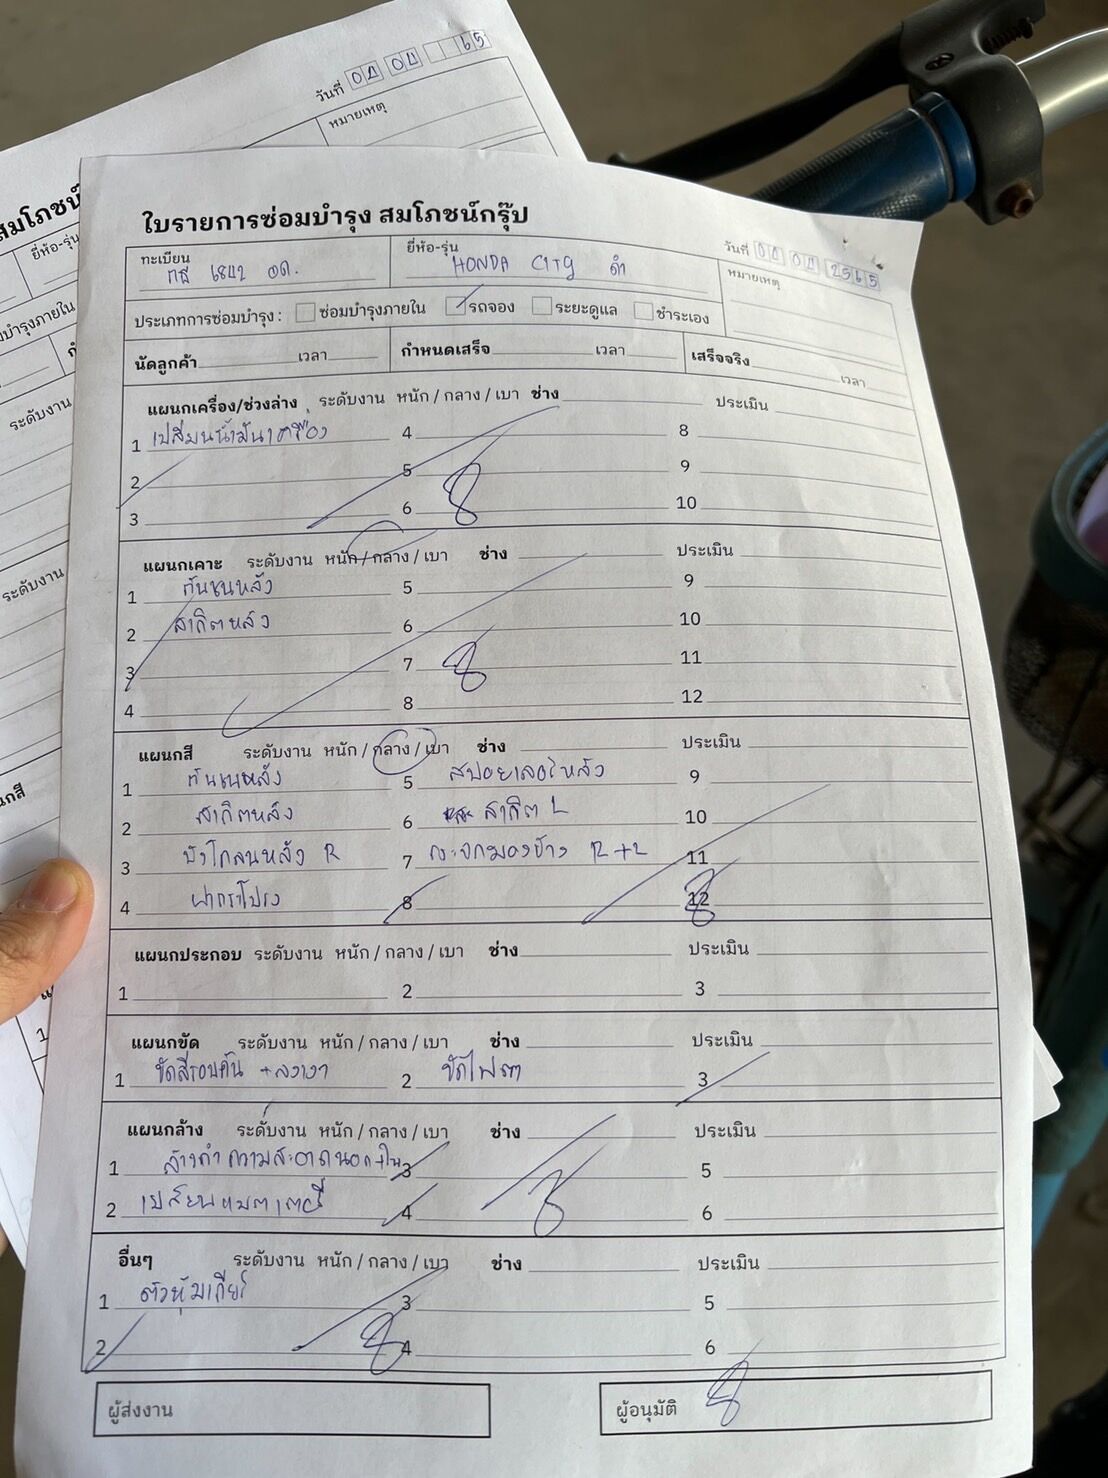 วันที่ 04 04 65
หมายเหตุ
สมโภชน์
ยี่ห้อ-รุ่น
บำรุงภายใน
ระดับงาน
ระดับงาน
ใบรายการซ่อมบำรุง สมโภชน์กรุ๊ป
ทะเบียน 6842 อด. ยี่ห้อ-รุ่น HONDA CITY ดำ วันที่ 04 04 2565
หมายเหตุ
ประเภทการซ่อมบำรุง : ซ่อมบำรุงภายใน รถจอง ระยะดูแล ชำระเอง
นัดลูกค้า เวลา กำหนดเสร็จ เวลา เสร็จจริง เวลา
แผนกเครื่อง/ช่วงล่าง ระดับงาน หนัก / กลาง / เบา ช่าง ประเมิน
1 เปลี่ยนน้ำมันเครื่อง 4 8
2 5 9
3 6 10
แผนกเคาะ ระดับงาน หนัก / กลาง / เบา ช่าง ประเมิน
1 กันชนหลัง 5 9
2 สเกิตหลัง 6 10
3 7 11
4 8 12
แผนกสี ระดับงาน หนัก / กลาง / เบา ช่าง ประเมิน
1 กันชนหลัง 5 สปอยเลอร์หลัง 9
2 สเกิตหลัง 6 สเกิต L 10
3 บังโคลนหลัง R 7 กระจกมองข้าง R+L 11
4 ฝากระโปรง 8 12
แผนกประกอบ ระดับงาน หนัก / กลาง / เบา ช่าง ประเมิน
1 2 3
แผนกขัด ระดับงาน หนัก / กลาง / เบา ช่าง ประเมิน
1 ขัดสีรอบคัน + ลงเงา 2 ขัดไฟตา 3
แผนกล้าง ระดับงาน หนัก / กลาง / เบา ช่าง ประเมิน
1 ล้างทำความสะอาดนอก+ใน 3 5
2 เปลี่ยนแบตเตอรี่ 4 6
อื่นๆ ระดับงาน หนัก / กลาง / เบา ช่าง ประเมิน
1 ตัวหุ้มเกียร์ 3 5
2 4 6
ผู้ส่งงาน ผู้อนุมัติ